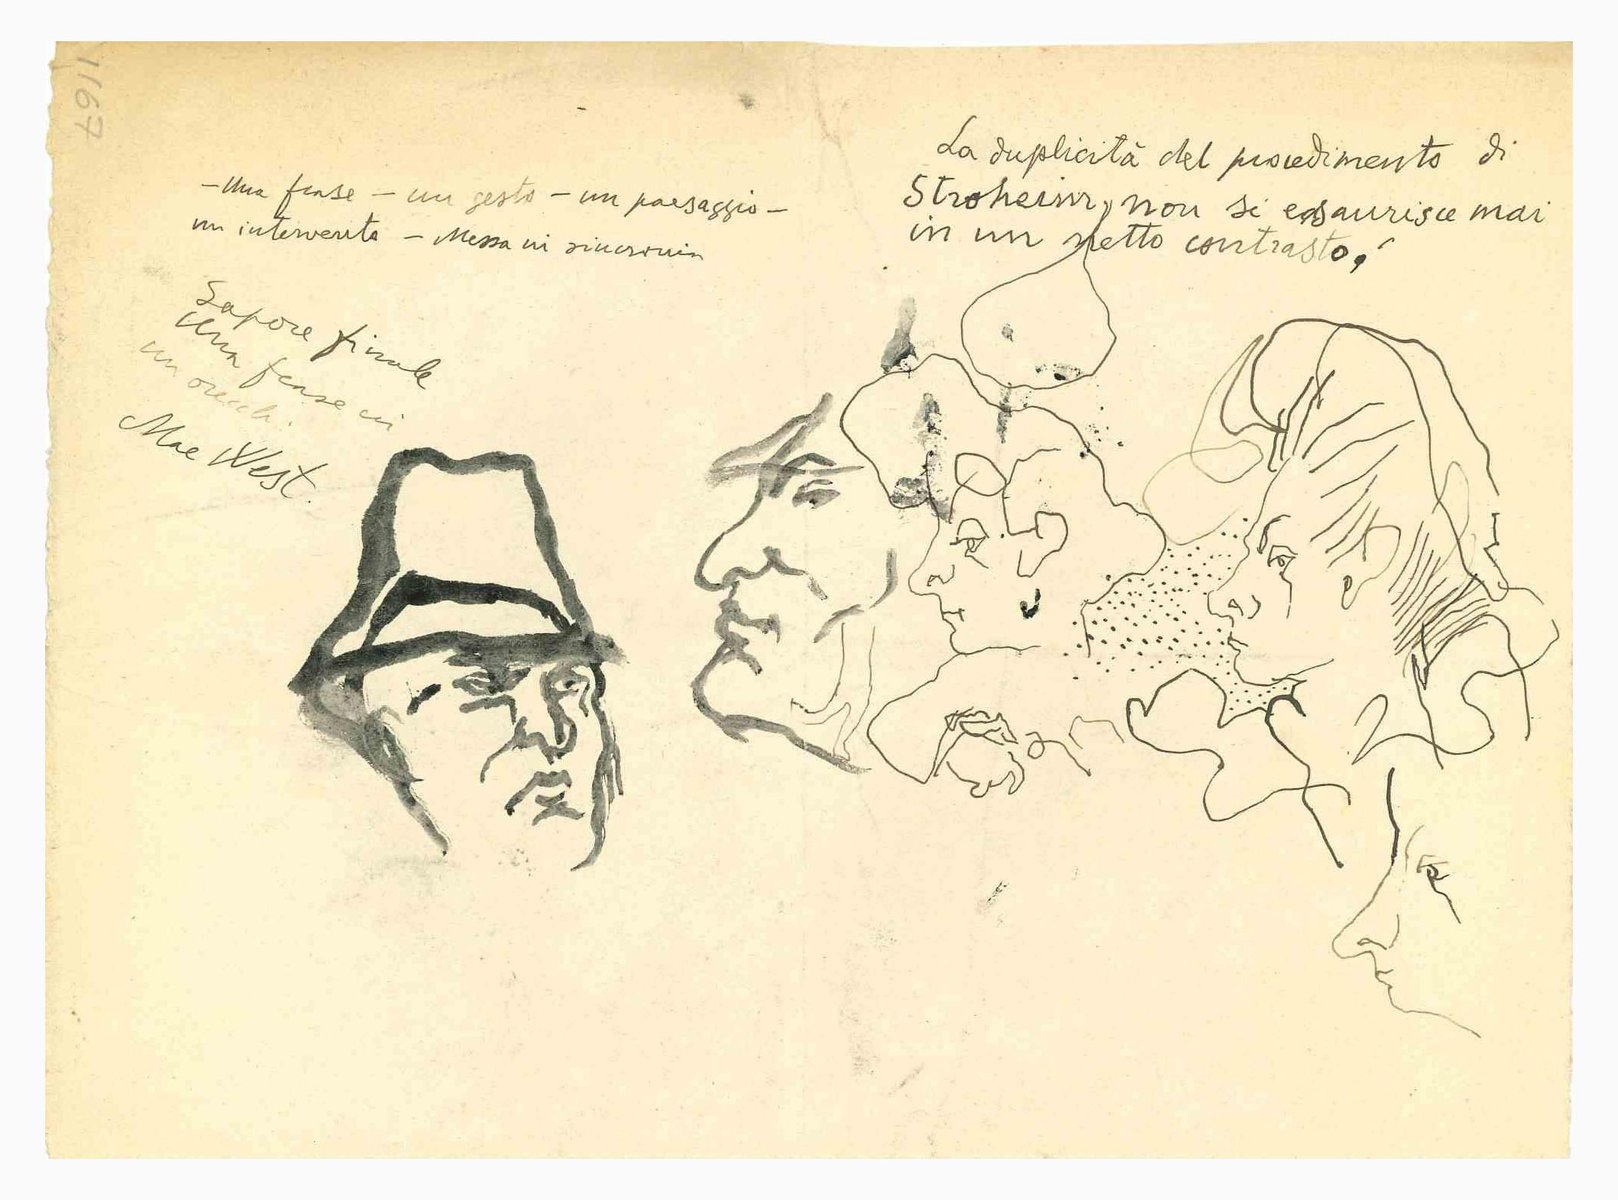 1/67
- Una frase - un gesto - un paesaggio -
un intervento - Messa in sincronia
Sapore finale
Una frase in
un orecch.
Mae West.
La duplicità del procedimento di
Stroheim, non si esaurisce mai
in un netto contrasto,